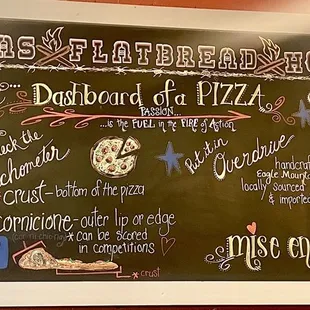 AS FLATBREAD HO
Dashboard of a PIZZA
PASSION...
...is the FUEL in the FIRE of Action
eck the
chometer
Put it in
Overdrive
handcraf
Eagle Mounta
locally sourced
& imported
crust - bottom of the pizza
cornicione - outer lip or edge
* can be scored
in competitions
mise en
* crust